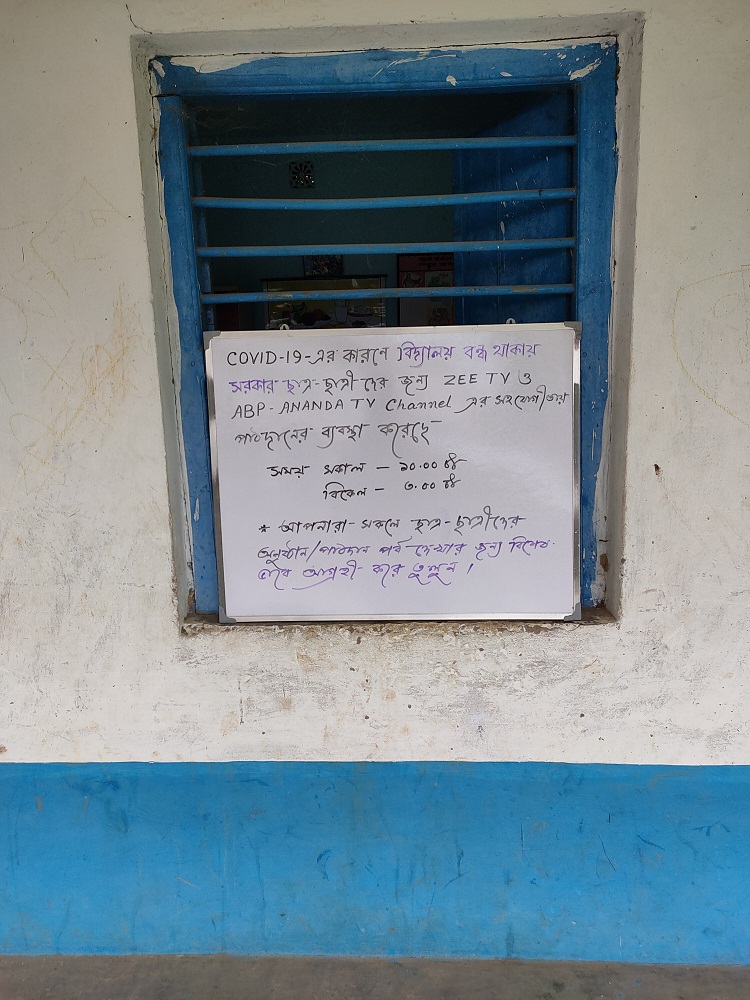 COVID-19-এর কারণে বিদ্যালয় বন্ধ থাকায়
সরকার ছাত্র-ছাত্রীদের জন্য ZEE TV ও
ABP-ANANDA TV Channel এর সহযোগীতায়
পাঠদানের ব্যবস্থা করেছে-
সময় সকাল - ১০.০০ টা
বিকেল - ৩.০০ টা
* আপনারা সকলে ছাত্র-ছাত্রীদের
অনুষ্ঠান/পাঠদান পর্ব দেখার জন্য বিশেষ
ভাবে আগ্রহী করে তুলুন।